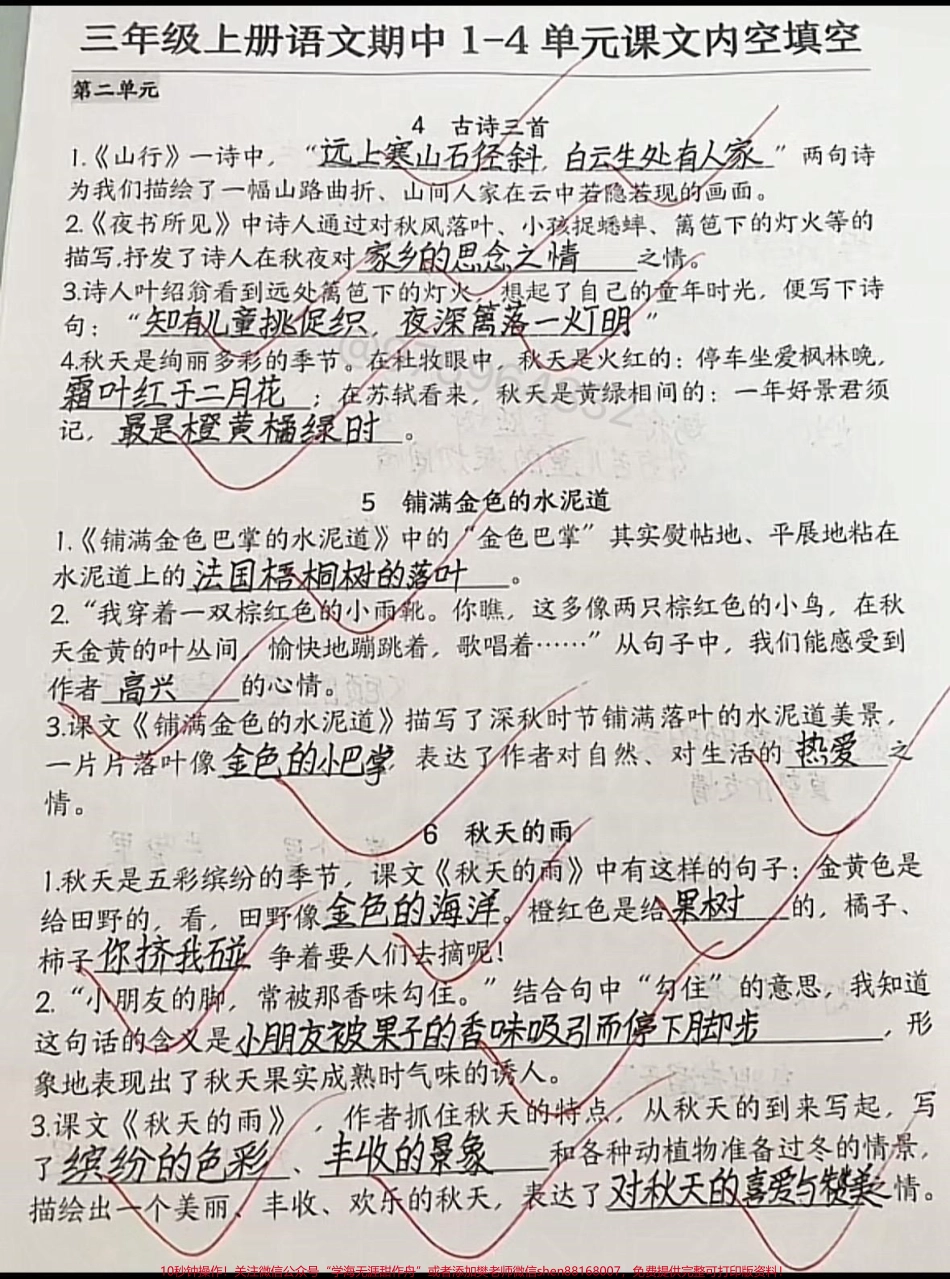 三年级上册语文期中1-4单元课文内空填空
第二单元
4 古诗三首
1.《山行》一诗中，“远上寒山石径斜，白云生处有人家”两句诗
为我们描绘了一幅山路曲折、山间人家在云中若隐若现的画面。
2.《夜书所见》中诗人通过对秋风落叶、小孩捉蟋蟀、篱笆下的灯火等的
描写.抒发了诗人在秋夜对家乡的思念之情之情。
3.诗人叶绍翁看到远处篱笆下的灯火，想起了自己的童年时光，便写下诗
句：“知有儿童挑促织，夜深篱落一灯明”
4.秋天是绚丽多彩的季节。在杜牧眼中，秋天是火红的：停车坐爱枫林晚，
霜叶红于二月花；在苏轼看来，秋天是黄绿相间的：一年好景君须
记，最是橙黄橘绿时。
5 铺满金色的水泥道
1.《铺满金色巴掌的水泥道》中的“金色巴掌”其实熨帖地、平展地粘在
水泥道上的法国梧桐树的落叶。
2.“我穿着一双棕红色的小雨靴。你瞧，这多像两只棕红色的小鸟，在秋
天金黄的叶丛间，愉快地蹦跳着，歌唱着……”从句子中，我们能感受到
作者高兴的心情。
3.课文《铺满金色的水泥道》描写了深秋时节铺满落叶的水泥道美景，
一片片落叶像金色的小巴掌，表达了作者对自然、对生活的热爱之
情。
6 秋天的雨
1.秋天是五彩缤纷的季节，课文《秋天的雨》中有这样的句子：金黄色是
给田野的，看，田野像金色的海洋。橙红色是给果树的，橘子、
柿子你挤我碰争着要人们去摘呢！
2.“小朋友的脚，常被那香味勾住。”结合句中“勾住”的意思，我知道
这句话的含义是小朋友被果子的香味吸引而停下脚步，形
象地表现出了秋天果实成熟时气味的诱人。
3.课文《秋天的雨》，作者抓住秋天的特点，从秋天的到来写起，写
了缤纷的色彩、丰收的景象和各种动植物准备过冬的情景，
描绘出一个美丽、丰收、欢乐的秋天，表达了对秋天的喜爱与赞美之情。
10秒钟操作！关注微信公众号“学海无涯甜作舟”或者添加樊老师微信shen88168007，免费提供完整可打印版资料！